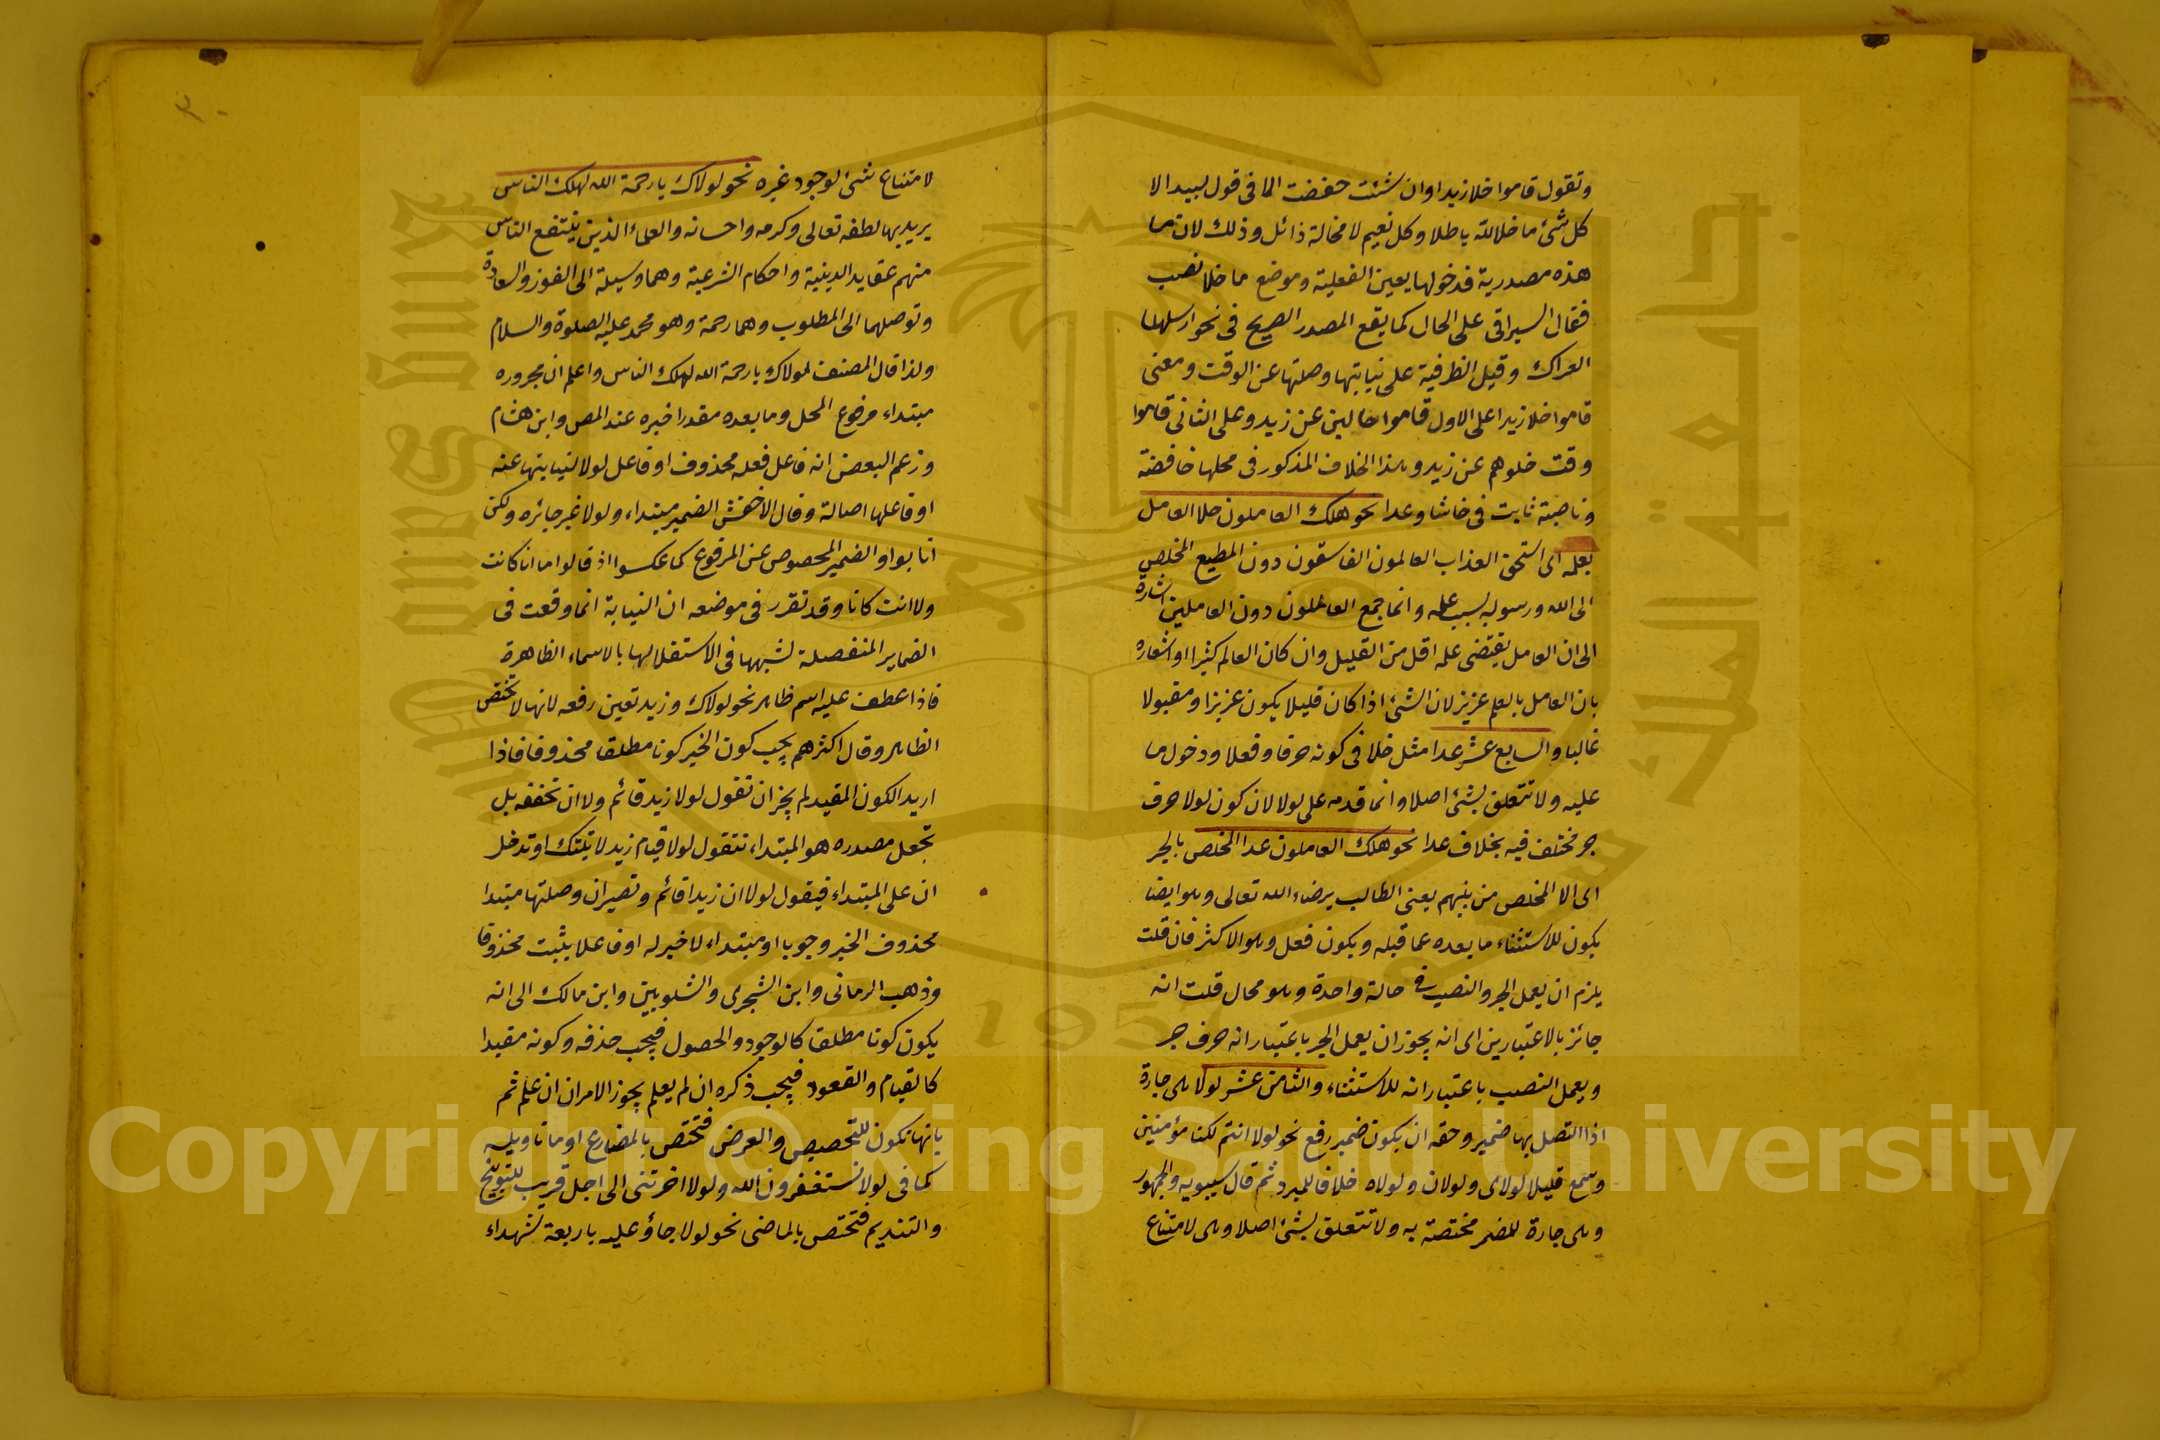 وتقول قاموا خلا زيدا وان شئت خفضت الا فى قول لبيد الا
كل شئ ما خلا لله باطلا وكل نعيم لا محالة ذائل وذلك لان ما
هذه مصدرية فدخولها يعين الفعلية وموضع ما خلا نصب
فقال السيرافى على الحال كما يقع المصدر الصريح فى نحو ارسلها
العراك وقيل الظرفية على نيابتها وصلتها عن الوقت ومعنى
قاموا خلا زيدا على الاول قاموا خالين عن زيد وعلى الثانى قاموا
وقت خلوهم عن زيد وهذا الخلاف المذكور فى محلها خافضة
وناصبة ثابت فى حاشا وعدا نحو هلك العاملون خلا العامل
بعلمه اى استحق العذاب العالمون الفاسقون دون المطيع المخلص
الى الله ورسوله بسبب علمه وانما جمع العاملون دون العاملين اشارة
الى ان العامل يقتضى علمه اقل من القليل وان كان العالم كثيرا او اشعاره
بان العامل بالعلم عزيز لان الشئ اذا كان قليلا يكون عزيزا ومقبولا
غالبا والسابع عشر عدا مثل خلا فى كونه حرفا وفعلا ودخول ما
عليه ولا تتعلق بشئ اصلا وانما قدمه على لولا لان كون لولا حرف
جر مختلف فيه بخلاف عدا نحو هلك العاملون عدا المخلص بالجر
اى الا المخلص من بينهم يعنى الطالب برضاء الله تعالى وهو ايضا
يكون للاستثناء ما بعده عما قبله ويكون فعل وهو الاكثر فان قلت
يلزم ان يعمل الجر والنصب فى حالة واحدة وهو محال قلت انه
جائز بالاعتبارين اى انه يجوز ان يعمل الجر باعتبار انه حرف جر
ويعمل النصب باعتبار انه للاستثناء والثامن عشر لولا هى جارة
اذا اتصل بها ضمير وحقه ان يكون ضمير رفع نحو لولا انتم لكنا مؤمنين
وسمع قليلا لولاى ولولان ولولاه خلافا للمبرد ثم قال سيبويه والجمهور
وهى جارة للضمير مختصة به ولا تتعلق بشئ اصلا وهى لامتناع
لامتناع شئ لوجود غيره نحو لولاك يا رحمة الله لهلك الناس
يريد بها لطفه تعالى وكرمه واحسانه والعلماء الذين ينتفع الناس
منهم عقايد الدينية واحكام الشرعية وهما وسيلة الى الفوز والسعادة
وتوصلهما الى المطلوب وهما رحمة وهو محمد عليه الصلوة والسلام
ولذا قال المصنف لولاك يا رحمة الله لهلك الناس واعلم ان مجروره
مبتداء مرفوع المحل وما بعده مقدرا خبره عند المص وابن هشام
وزعم البعض انه فاعل فعله محذوف او فاعل لولا لنيابتها عنه
او فاعلها اصالة وقال الاخفش الضمير مبتداء ولولا غير جائره ولكن
انابوا والضمير المخصوص عن المرفوع كما عكسوا اذ قالوا ما انا كانت
ولا انت كانا وقد تقرر فى موضعه ان النيابة انما وقعت فى
الضماير المنفصلة لشبهها فى الاستقلالها بالاسماء الظاهرة
فاذا عطف عليه اسم ظاهر نحو لولاك وزيد تعين رفعه لانها لا تختص
الظاهر وقال اكثرهم يجب كون الخبر كونا مطلقا محذوفا فاذا
اريد الكون المقيد لم يجز ان تقول لولا زيد قائم ولا ان تخففه بل
تجعل مصدره هو المبتداء فتقول لولا قيام زيد لاتيتك او تدخل
ان على المبتداء فيقول لولا ان زيدا قائم وتصير ان وصلتها مبتدا
محذوف الخبر وجوبا او مبتداء لا خبر له او فاعلا بثبت محذوفا
وذهب الرمانى وابن الشجرى والشلوبين وابن مالك الى انه
يكون كونا مطلقا كالوجود والحصول فيجب حذفه وكونه مقيدا
كالقيام والقعود فيجب ذكره ان لم يعلم يجوز الامران ان علم ثم
بانها تكون للتحصيص والعرض فتختص بالمضارع او ما تاويله
كما فى لولا تستغفرون الله ولولا اخرتنى الى اجل قريب للتوبيخ
والتنديم فتختص بالماضى نحو لولا جاؤ عليه باربعة شهداء
Copyright © King Saud University
جامعة الملك سعود
King Saud University
1957